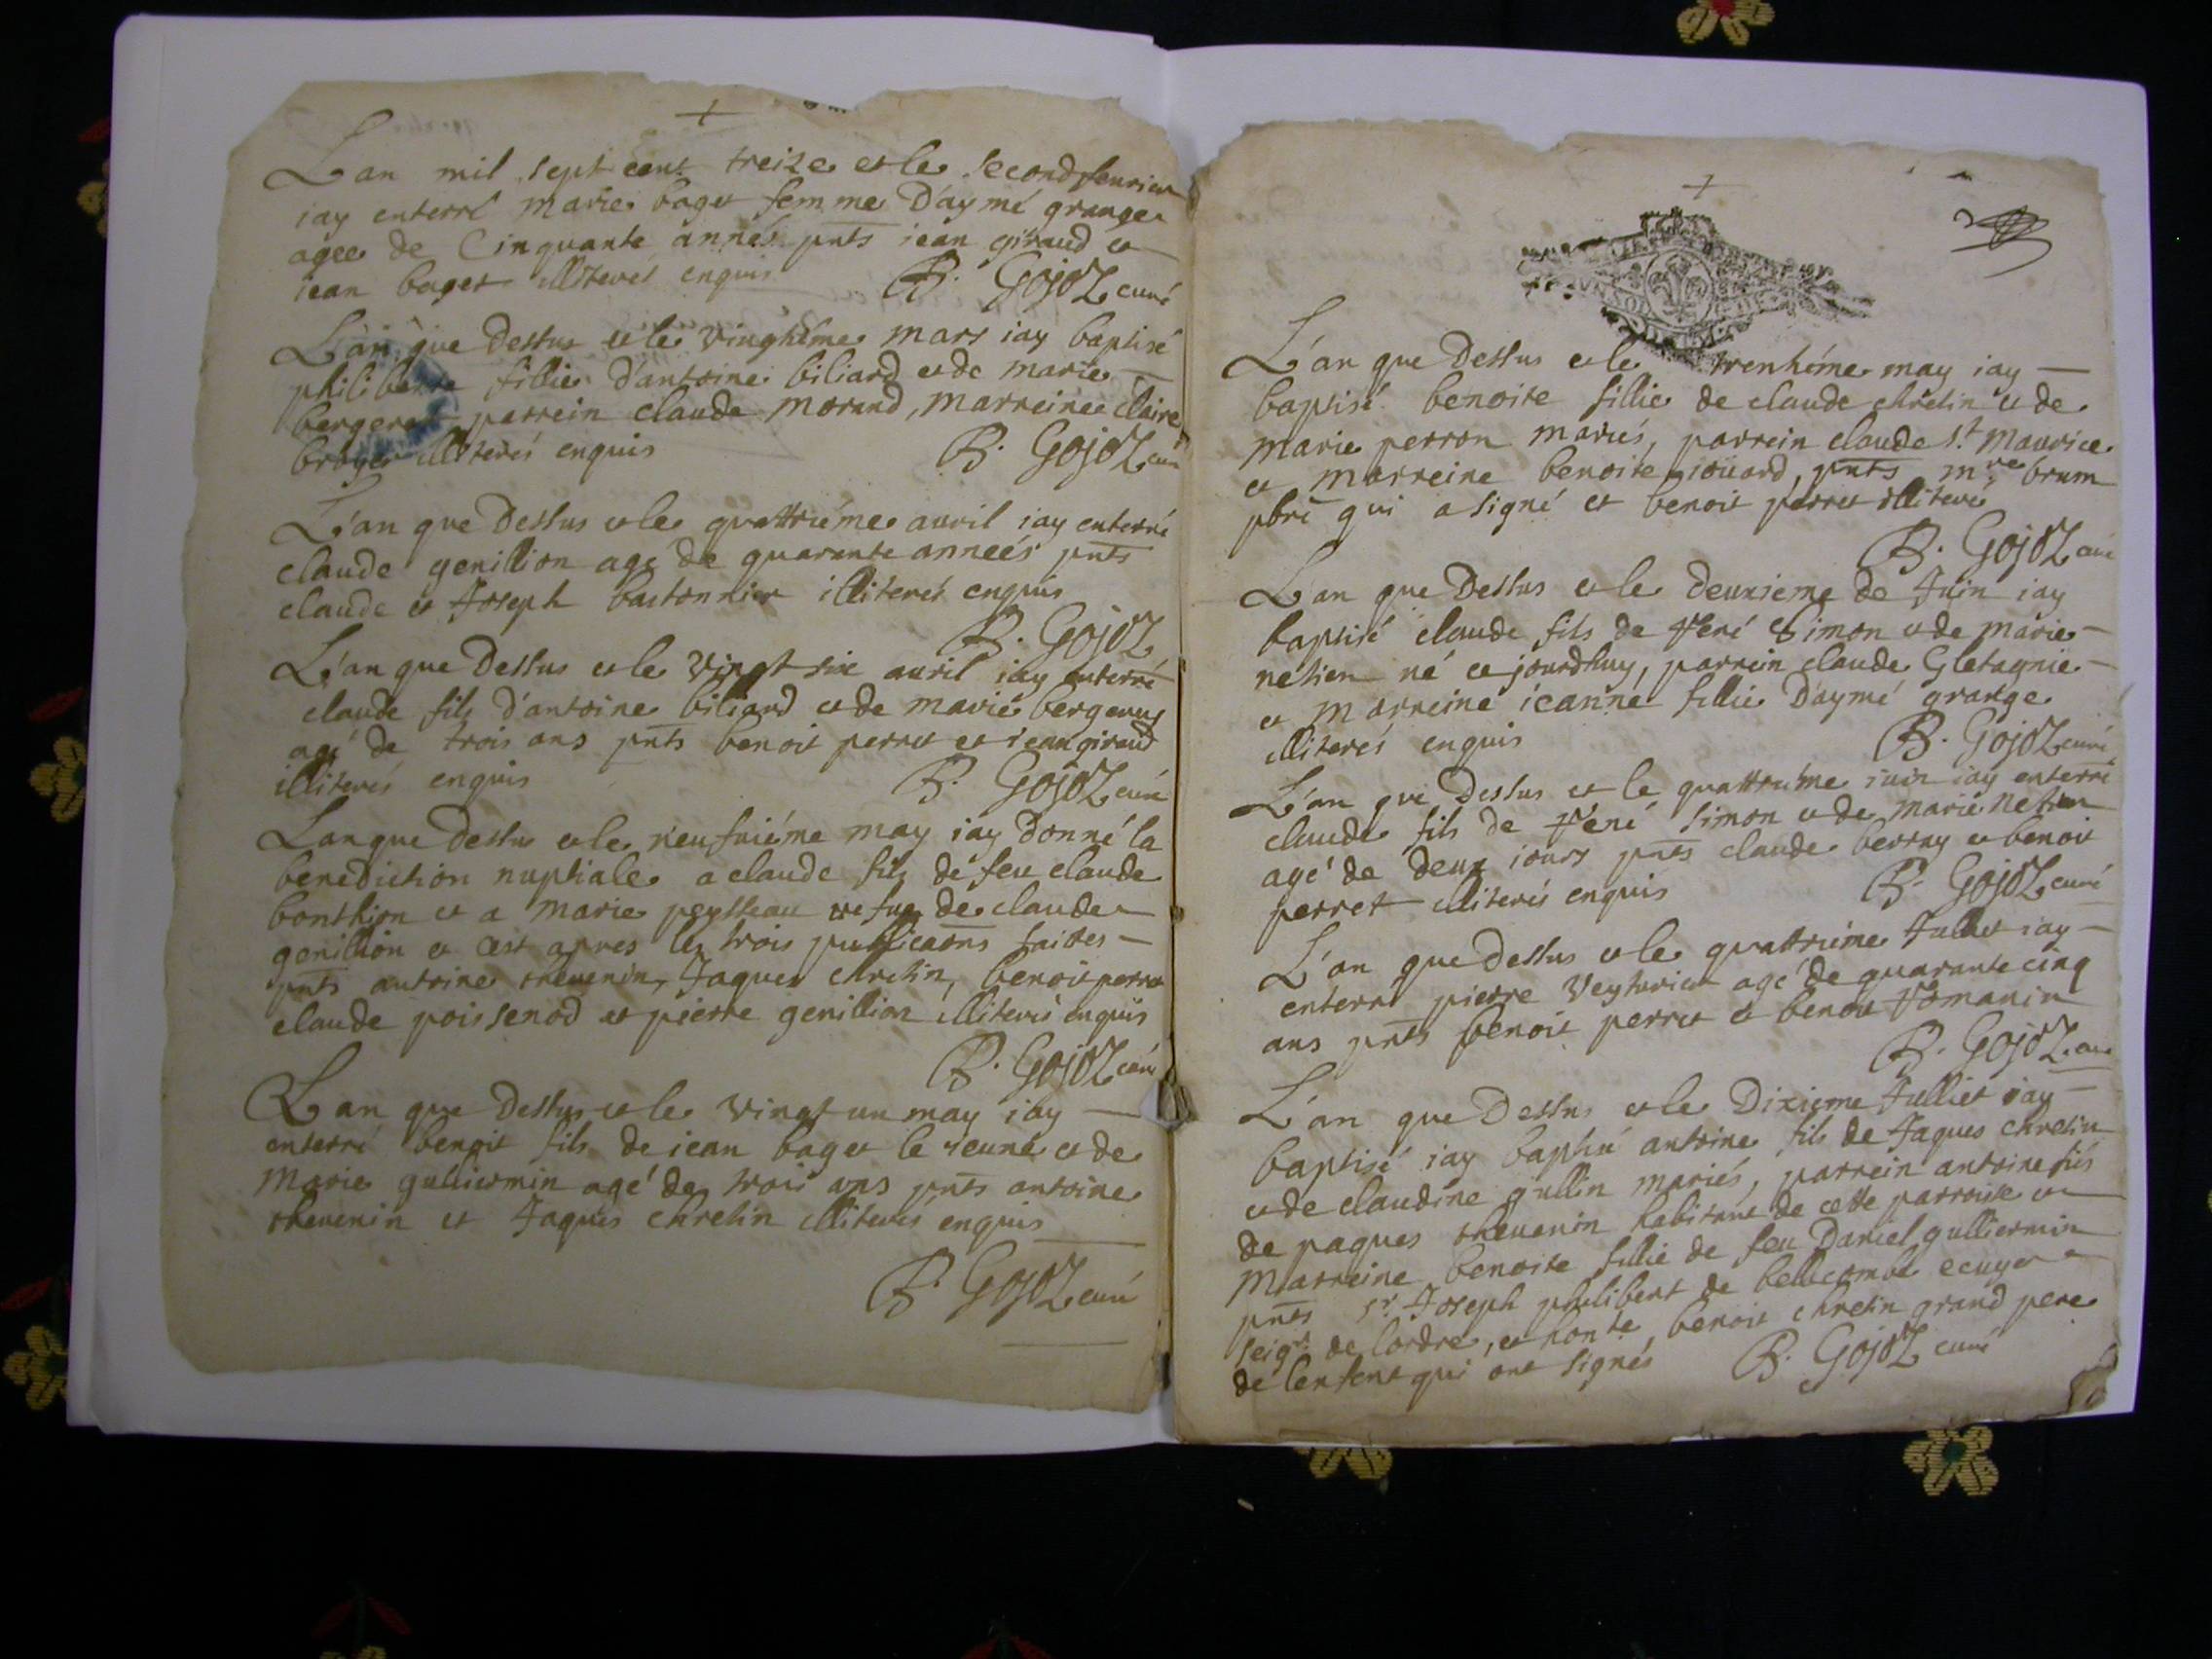 L'an mil sept cent treize et le second feurier
iay enterré marie baget femme D'aymé grange
agee de Cinquante années pnts iean giraud et
iean baget illiterés enquis B. Gojoz curé
L'an que Dessus et le vingtiéme mars iay baptisé
philiberte fillie d'antoine biliard et de marie
bergeret parrein claude morand, marreine claire
broyer illiterés enquis B. Gojoz curé
L'an que Dessus et le quattriéme auril iay enterré
claude genillion agé de quarante anneés pnts
claude et Joseph bastonnier illiterés enquis
B. Gojoz
L'an que Dessus et le vingt six auril iay enterré
claude fils d'antoine biliard et de marie
agé de trois ans pnts benoit perret et iean giraud
illiterés enquis B. Gojoz curé
L'an que Dessus et le neufuiéme may iay Donné la
benediction nuptiale a claude fils de feu claude
bonthion et a marie peysseau de claude
genillion et cest apres les trois faittes
pnts antoine theuenin, Jaques chretin, benoit perret
claude poissenod et pierre genillion illiterés enquis
B. Gojoz curé
L'an que Dessus et le vingt un may iay
enterré benoit fils de iean baget le ieune et de
marie gulliermin agé de trois ans pnts antoine
theuenin et Jaques chretin illiterés enquis
B. Gojoz curé
L'an que Dessus et le trentiéme may iay
baptisé benoite fillie de claude chretin et de
marie perron mariés, parrein claude St maurice
et marreine benoite iouard, pnts mre brum
pbre qui a signé et benoit perret illiteré
B. Gojoz curé
L'an que Dessus et le deuxieme de Juin iay
baptisé claude fils de René Simon et de marie
netien né ce jourdhuy, parrein claude Gletagnie
et marreine ieanne fillie D'aymé grange
illiterés enquis B. Gojoz curé
L'an que Dessus et le quattriéme iuin iay enterré
claude fils de René Simon et de marie netien
agé de deux iours pnts claude berray et benoit
perret illiterés enquis B. Gojoz curé
L'an que Dessus et le quattriéme Jullet iay
enterré pierre agé de quarante cinq
ans pnts benoit perret et benoit Romanin
B. Gojoz curé
L'an que Dessus et le Dixieme Julliet iay
baptisé iay baptisé antoine fils de Jaques chretin
et de claudine gullin mariés, parrein antoine fils
de jaques theuenin habitant de cette parroisse et
marreine benoite fillie de feu Daniel gulliermin
pnts sr. Joseph philibert de bellecombe ecuyer
seigr. de lordre, et honte, benoit chretin grand pere
de lenfent qui ont signés B. Gojoz curé